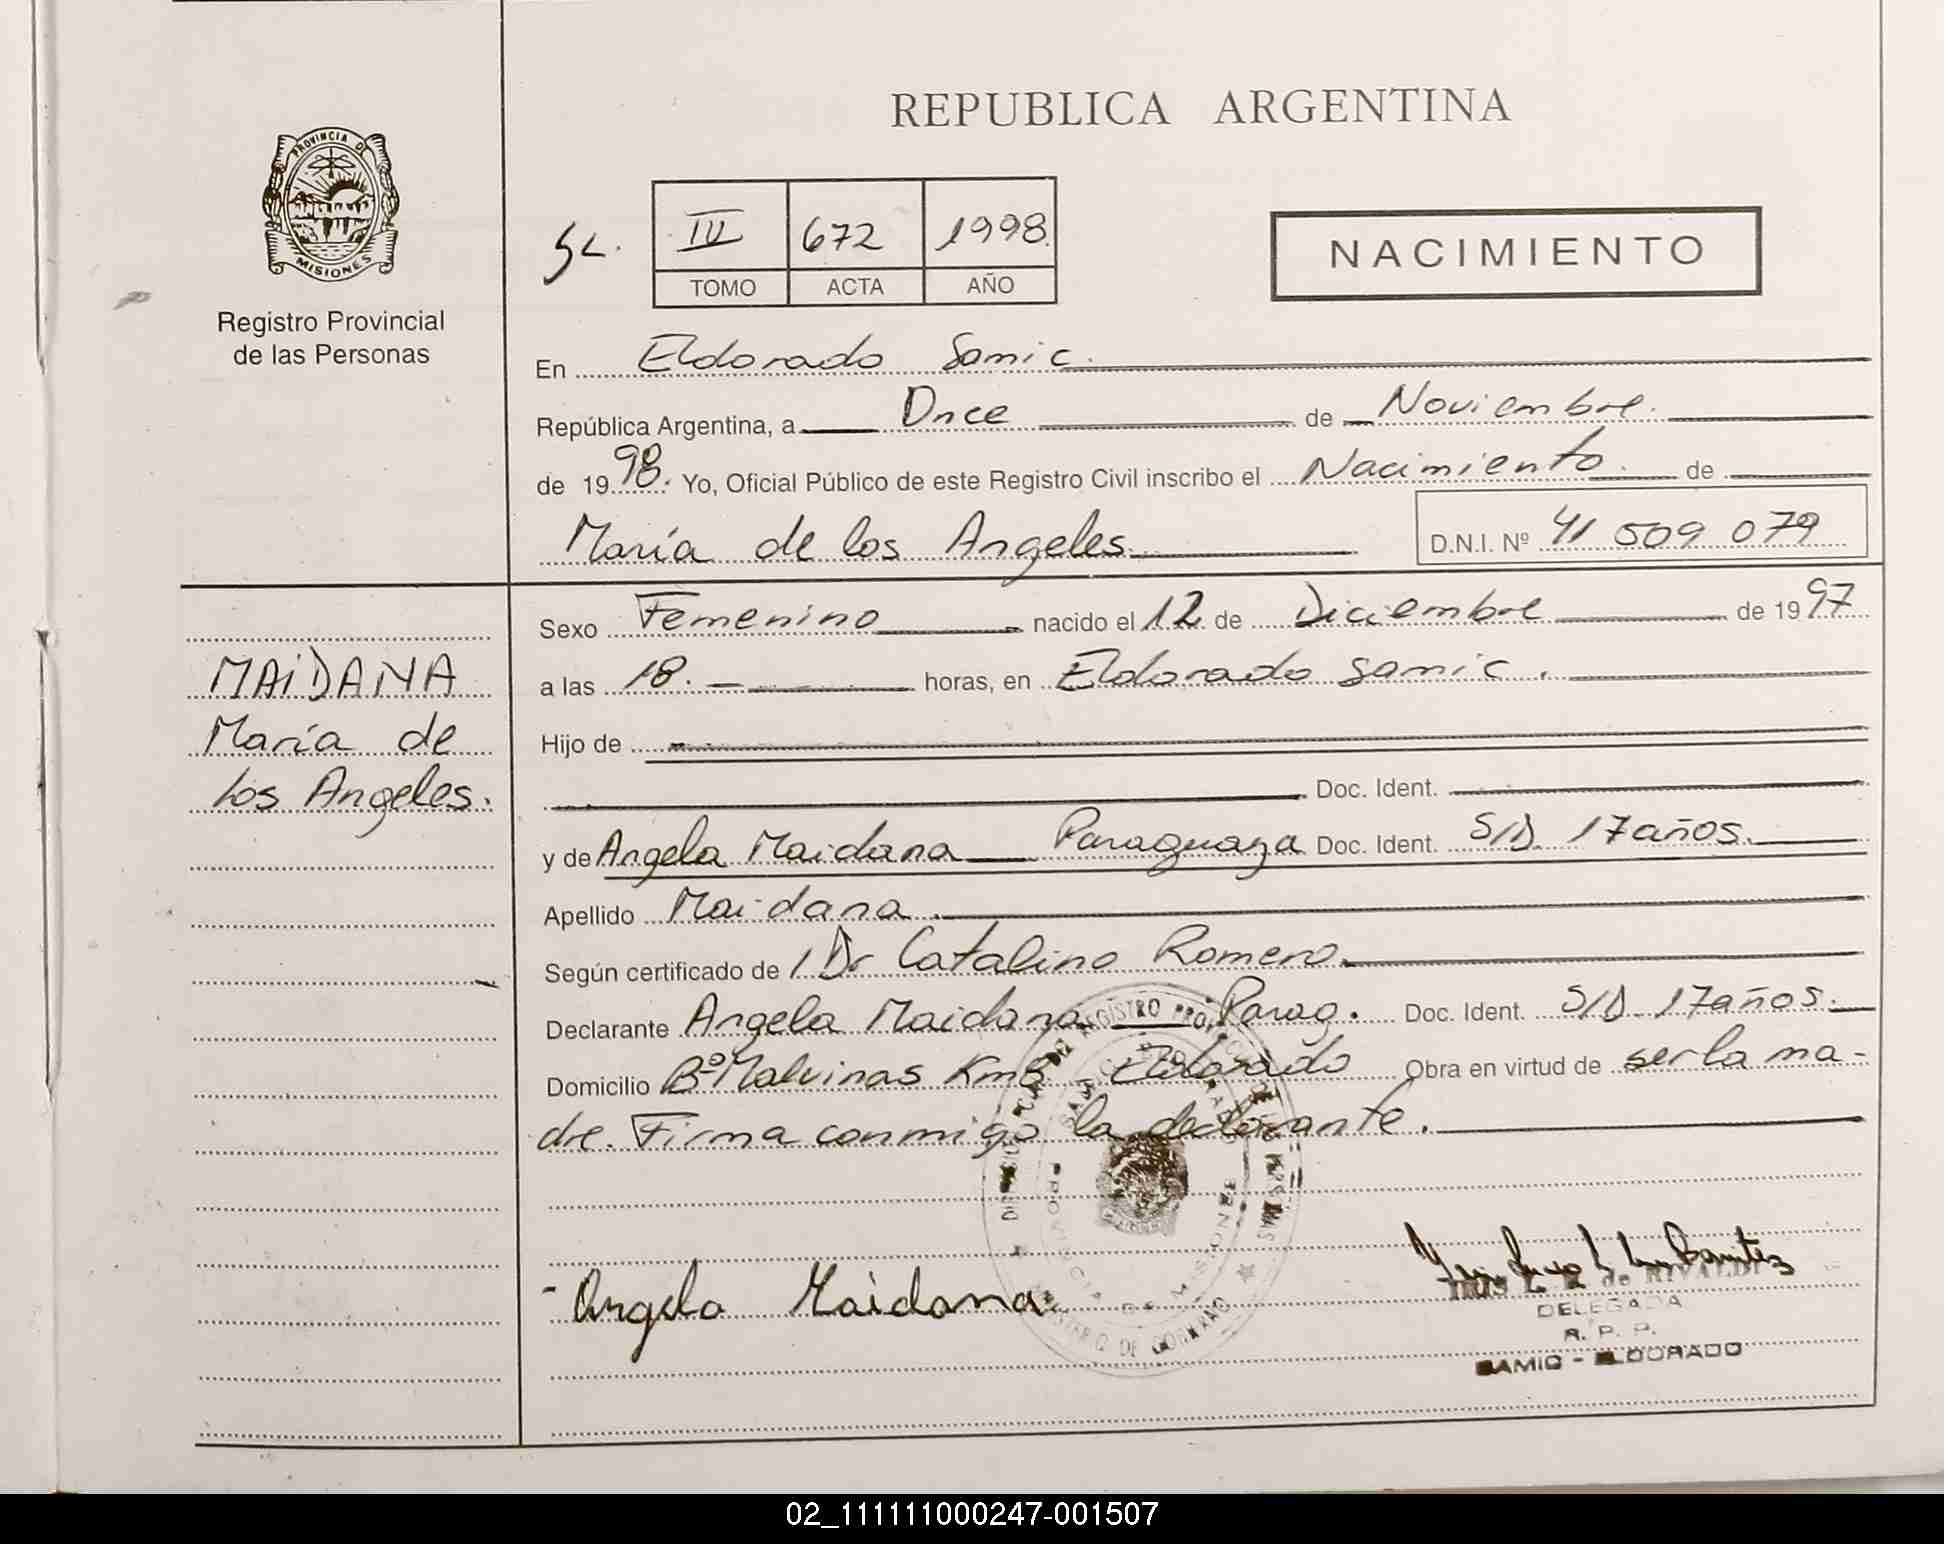 REPUBLICA ARGENTINA
PROVINCIA DE
MISIONES
Registro Provincial
de las Personas
SL.
IV 672 1998.
TOMO ACTA AÑO
NACIMIENTO
En Eldorado Samic.
República Argentina, a Once de Noviembre.
de 1998. Yo, Oficial Público de este Registro Civil inscribo el Nacimiento. de
María de los Angeles
D.N.I. Nº 41 509 079
MAIDANA
María de
los Angeles.
Sexo Femenino nacido el 12 de Diciembre de 1997
a las 18. horas, en Eldorado Samic.
Hijo de
Doc. Ident.
y de Angela Maidana Paraguaya Doc. Ident. S/D. 17 años.
Apellido Maidana.
Según certificado de Dr Catalino Romero.
Declarante Angela Maidana Parag. Doc. Ident. S/D. 17 años.
Domicilio Bº Malvinas Km8 - Eldorado Obra en virtud de ser la ma-
dre. Firma conmigo la declarante.
- Angela Maidana
de RIVALDI
DELEGADA
R. P. P.
SAMIC - ELDORADO
02_111111000247-001507